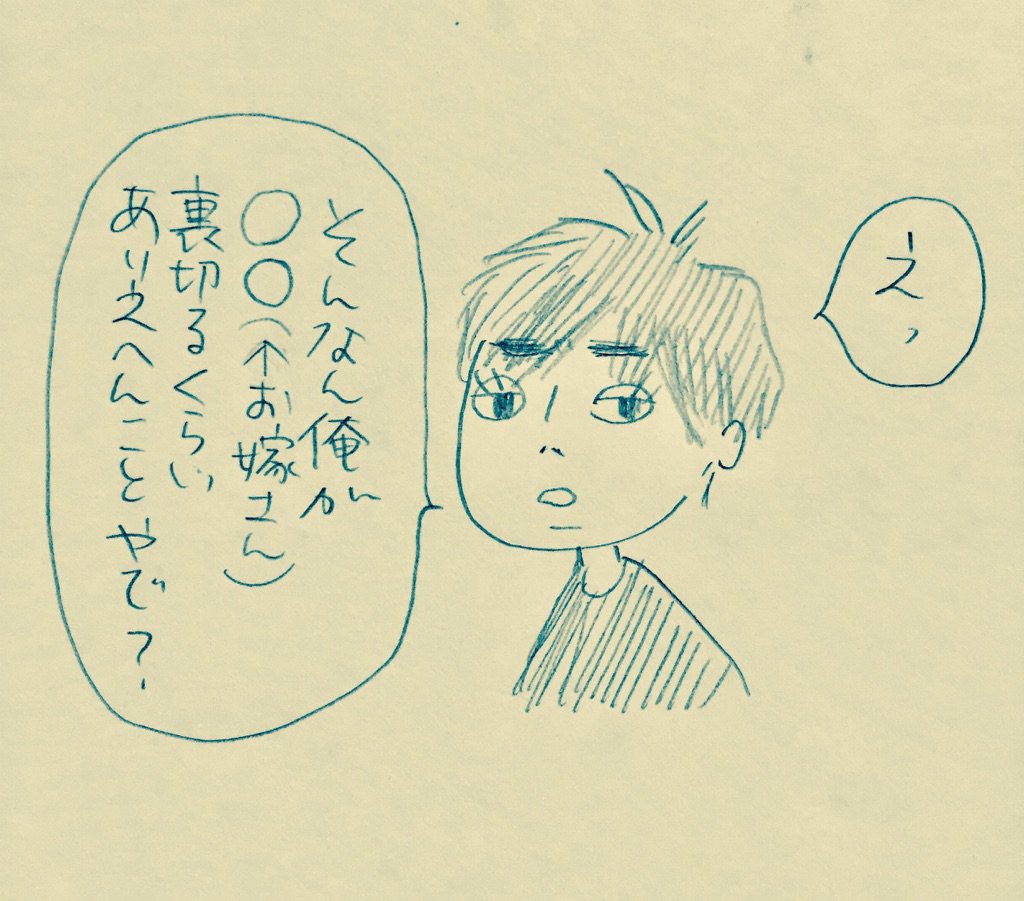 えっ
そんなん俺が
〇〇(↑お嫁さん)
裏切るくらい
ありえへんことやで?